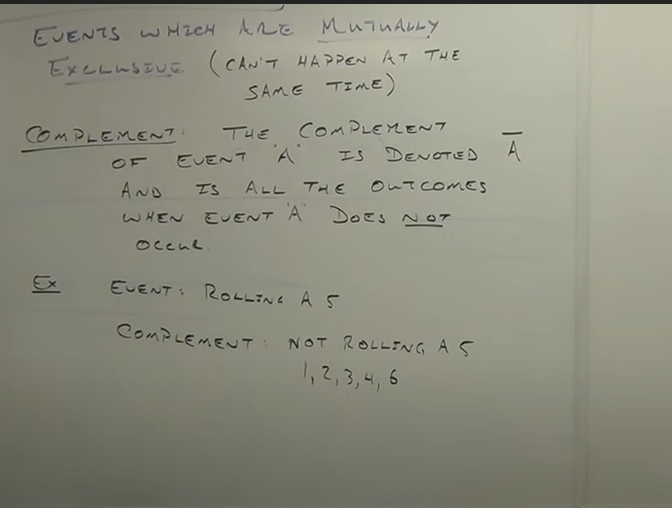 EVENTS WHICH ARE MUTUALLY
EXCLUSIVE (CAN'T HAPPEN AT THE
SAME TIME)
COMPLEMENT: THE COMPLEMENT
OF EVENT "A" IS DENOTED A̅
AND IS ALL THE OUTCOMES
WHEN EVENT "A" DOES NOT
OCCUR.
Ex EVENT: ROLLING A 5
COMPLEMENT: NOT ROLLING A 5
1, 2, 3, 4, 6